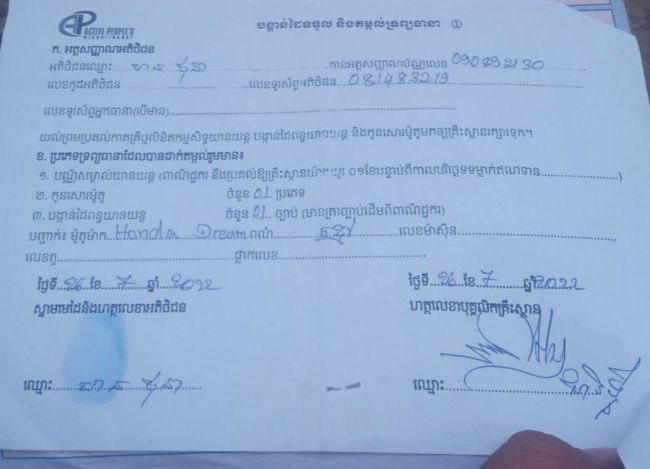 ACTIVE PEOPLE'S
MICROFINANCE
បង្កាន់ដៃទទួល និងតម្កល់ទ្រព្យធានា ①
ក. អត្តសញ្ញាណអតិថិជន
អតិថិជនឈ្មោះ ហាន ធុនា កាន់អត្តសញ្ញាណប័ណ្ណលេខ 090892130
លេខកូដអតិថិជន លេខទូរស័ព្ទអតិថិជន 081483219
លេខទូរស័ព្ទអ្នកធានា(បើមាន)
យល់ព្រមប្រគល់កាតគ្រីឬលិខិតកម្មសិទ្ធយានយន្ត បង្កាន់ដៃពន្ធយានយន្ត និងកូនសោរម៉ូតូមកឲ្យគ្រឹះស្ថានរក្សាទុក។
ខ. ប្រភេទទ្រព្យធានាដែលបានដាក់តម្កល់រួមមាន៖
១. បណ្ណសម្គាល់យានយន្ត (ពាណិជ្ជករ នឹងប្រគល់ឱ្យគ្រឹះស្ថានយ៉ាងយូរ ០១ខែបន្ទាប់ពីកាលបរិច្ឆេទទម្លាក់ឥណទាន)
២. កូនសោរម៉ូតូ ចំនួន 01 ប្រភេទ
៣. បង្កាន់ដៃពន្ធយានយន្ត ចំនួន 01 ច្បាប់ (មានត្រាច្បាប់ដើមពីពាណិជ្ជករ)
បញ្ជាក់៖ ម៉ូតូម៉ាក Honda Dream ពណ៌ ខ្មៅ លេខម៉ាស៊ីន
លេខតួ ផ្លាកលេខ
ថ្ងៃទី 26 ខែ 7 ឆ្នាំ 2022 ថ្ងៃទី 26 ខែ 7 ឆ្នាំ 2022
ស្នាមមេដៃនិងហត្ថលេខាអតិថិជន ហត្ថលេខាបុគ្គលិកគ្រឹះស្ថាន
ឈ្មោះ ហាន ធុនា ឈ្មោះ